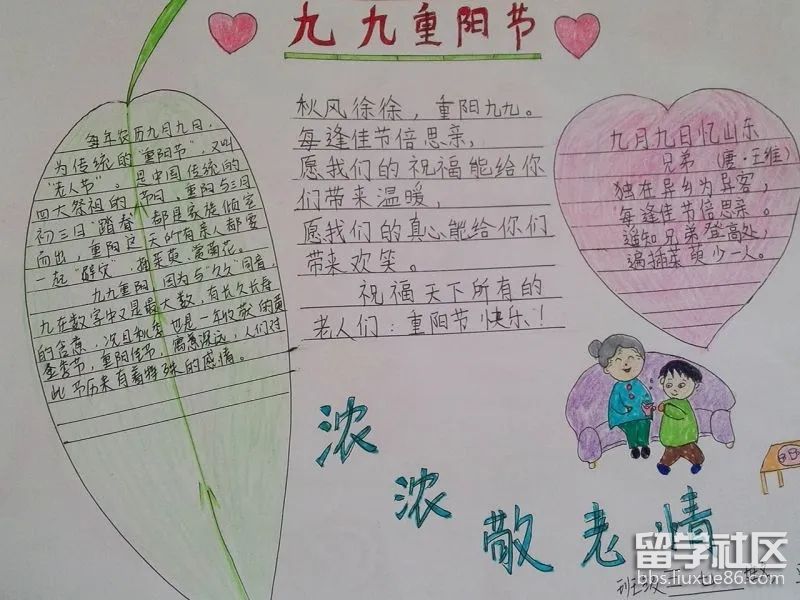 九九重阳节
每年农历九月九日，
为传统的"重阳节"，又叫
"老人节"。是中国传统的
四大祭祖的节日，重阳与三月
初三日"踏春"都是家族倾室
而出，重阳这天所有亲人都要
一起"避灾"，插茱萸、赏菊花。
九九重阳，因为与"久久"同音，
九在数字中又是最大数，有长久长寿
的含意，况且秋季也是一年收获的黄
金季节，重阳佳节，寓意深远，人们对
此节历来有着特殊的感情。
秋风徐徐，重阳九九。
每逢佳节倍思亲，
愿我们的祝福能给你
们带来温暖，
愿我们的真心能给你们
带来欢笑。
祝福天下所有的
老人们：重阳节快乐！
九月九日忆山东
兄弟（唐·王维）
独在异乡为异客，
每逢佳节倍思亲。
遥知兄弟登高处，
遍插茱萸少一人。
浓浓敬老情
班级 七 姓名
留学社区
bbs.liuxue86.com